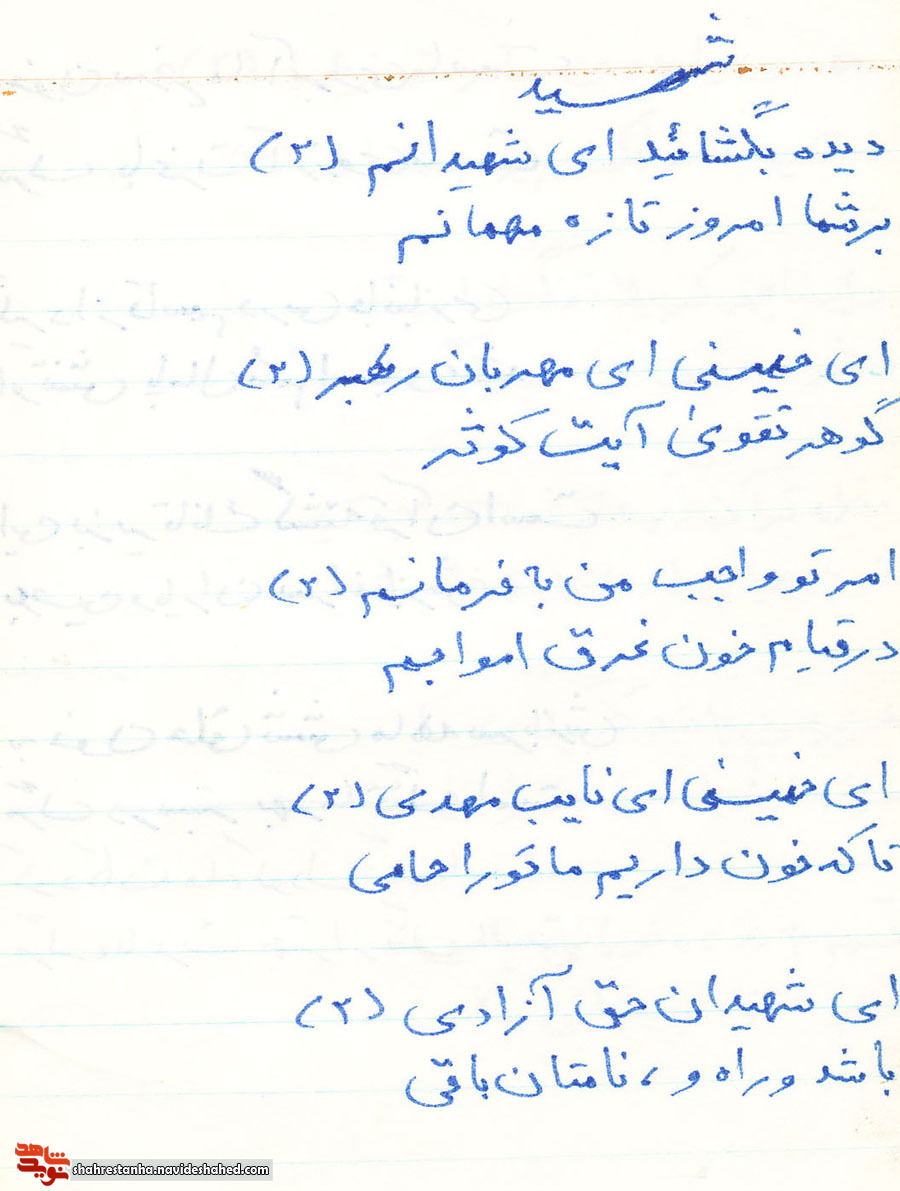 شهید
دیده بگشائید ای شهیدانم (۲)
بر شما امروز تازه مهمانم
ای خمینی ای مهربان رهبر (۲)
گوهر تقویٰ آیت کوثر
امر تو واجب من به فرمانم (۲)
در قیام خون غرق امواجم
ای خمینی ای نایب مهدی (۲)
تا که خون داریم ما تو را حامی
ای شهیدان حق آزادی (۲)
باشد و راه و، نامتان باقی
نوید شاهد
shahrestanha.navideshahed.com